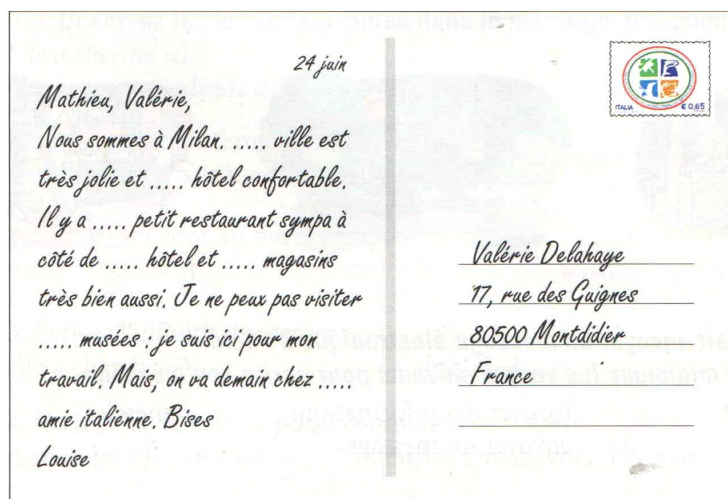 24 juin
Mathieu, Valérie,
Nous sommes à Milan. ..... ville est
très jolie et ..... hôtel confortable.
Il y a ..... petit restaurant sympa à
côté de ..... hôtel et ..... magasins
très bien aussi. Je ne peux pas visiter
..... musées : je suis ici pour mon
travail. Mais, on va demain chez .....
amie italienne. Bises
Louise
ITALIA € 0,65
Valérie Delahaye
17, rue des Guignes
80500 Montdidier
France